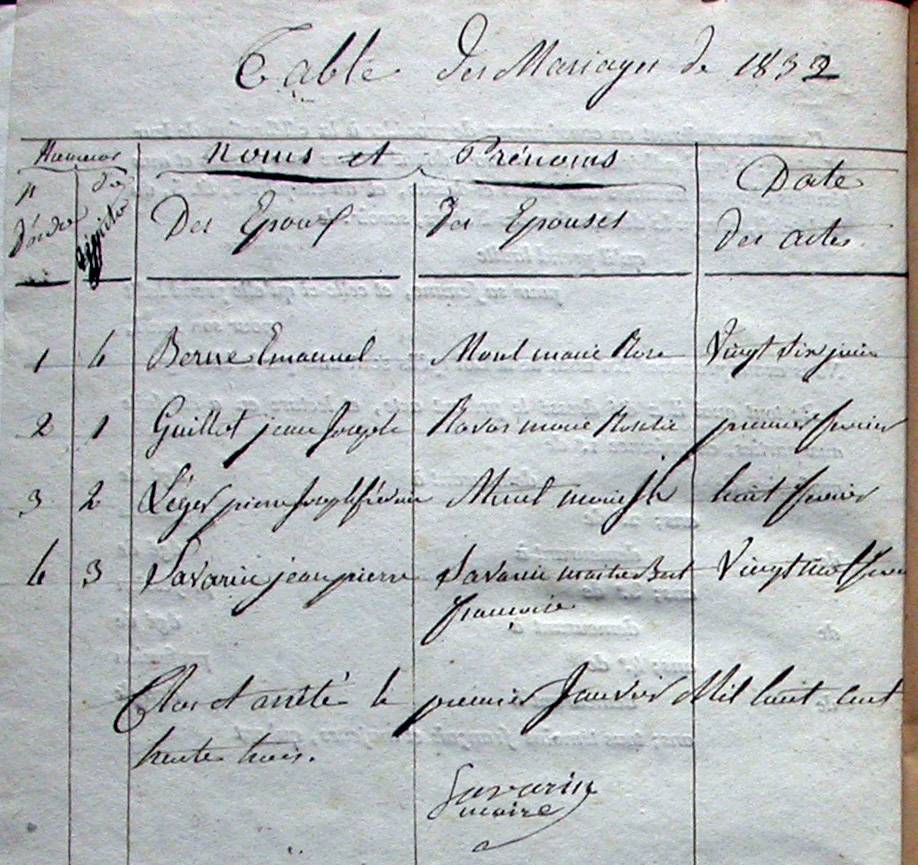 Table des Mariages de 1832
Numeros Noms et Prénoms Date
d'ordre du registre Des Epoux des Epouses des actes
1 4 Borne Emanuel Morel marie Rose Vingt six juin
2 1 Guillot jean Joseph marie Rosalie premier fevrier
3 2 Léger pierre Joseph marie huit fevrier
4 3 Savarin jean pierre Savarin
françoise
Clos et arrêté le premier Janvier Mil huit cent
trente trois.
Savarin
maire